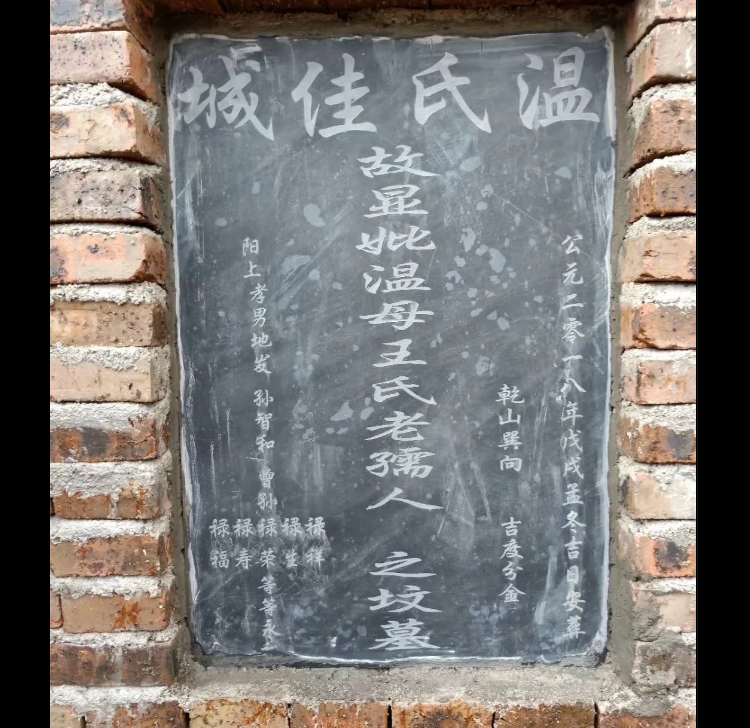 温氏佳城
公元二零一八年戊戌孟冬吉日安葬
乾山巽向 吉度分金
故显妣温母王氏老孺人 之坟墓
阳上孝男地发 孙智和 曾孙
禄祥
禄生
禄荣等等永
禄寿
禄福